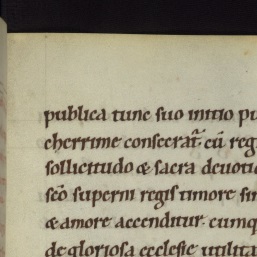 publica tunc suo initio pu
cherrime consecrat̄. cū reg
sollicitudo & sacra deuoti
sc̄o superni regis timore si
& amore accenditur. cumq
de gloriosa ecclesie utilita